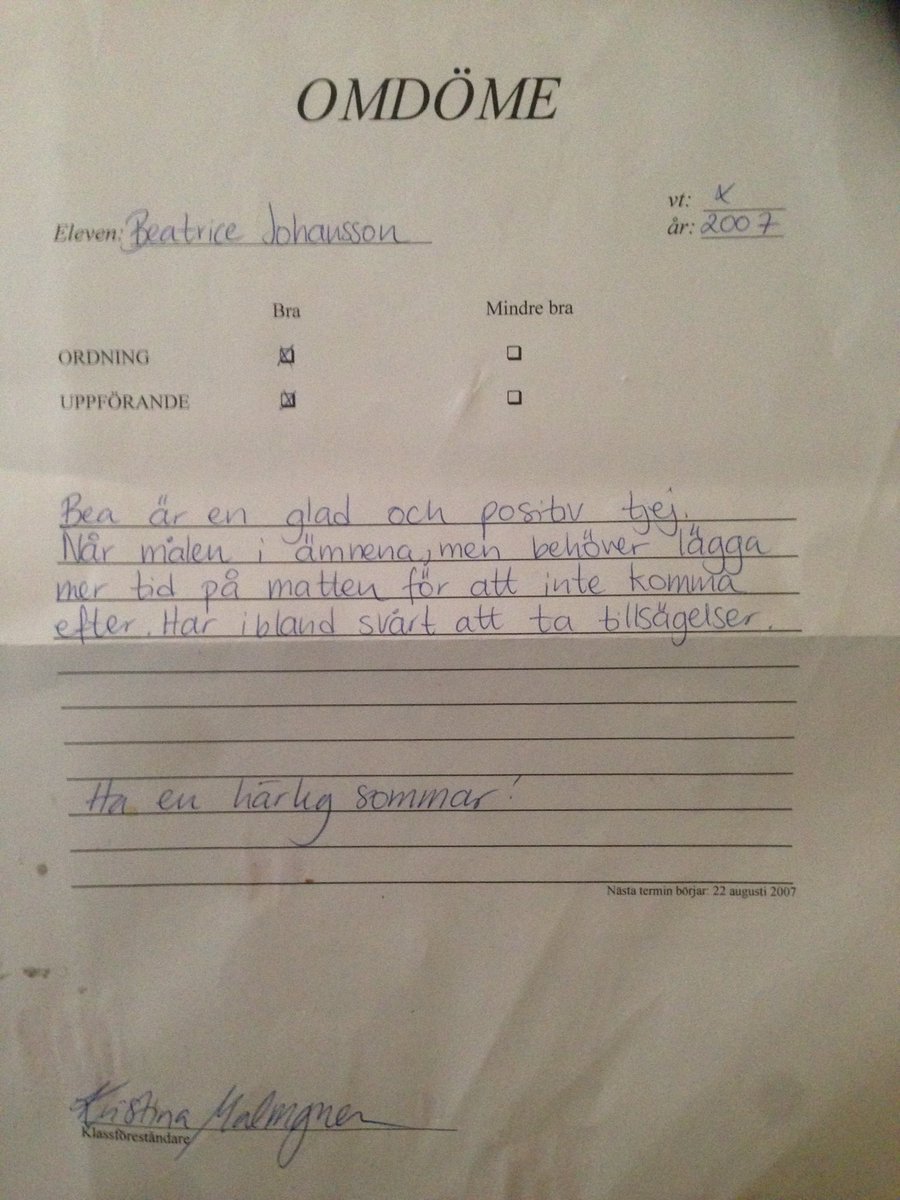 OMDÖME
vt: x
Eleven: Beatrice Johansson
år: 2007
Bra Mindre bra
ORDNING ☒ ☐
UPPFÖRANDE ☒ ☐
Bea är en glad och positiv tjej.
Når målen i ämnena, men behöver lägga
mer tid på matten för att inte komma
efter. Har ibland svårt att ta tillsägelser.
Ha en härlig sommar!
Nästa termin börjar: 22 augusti 2007
Kristina Malmgren
Klassföreståndare